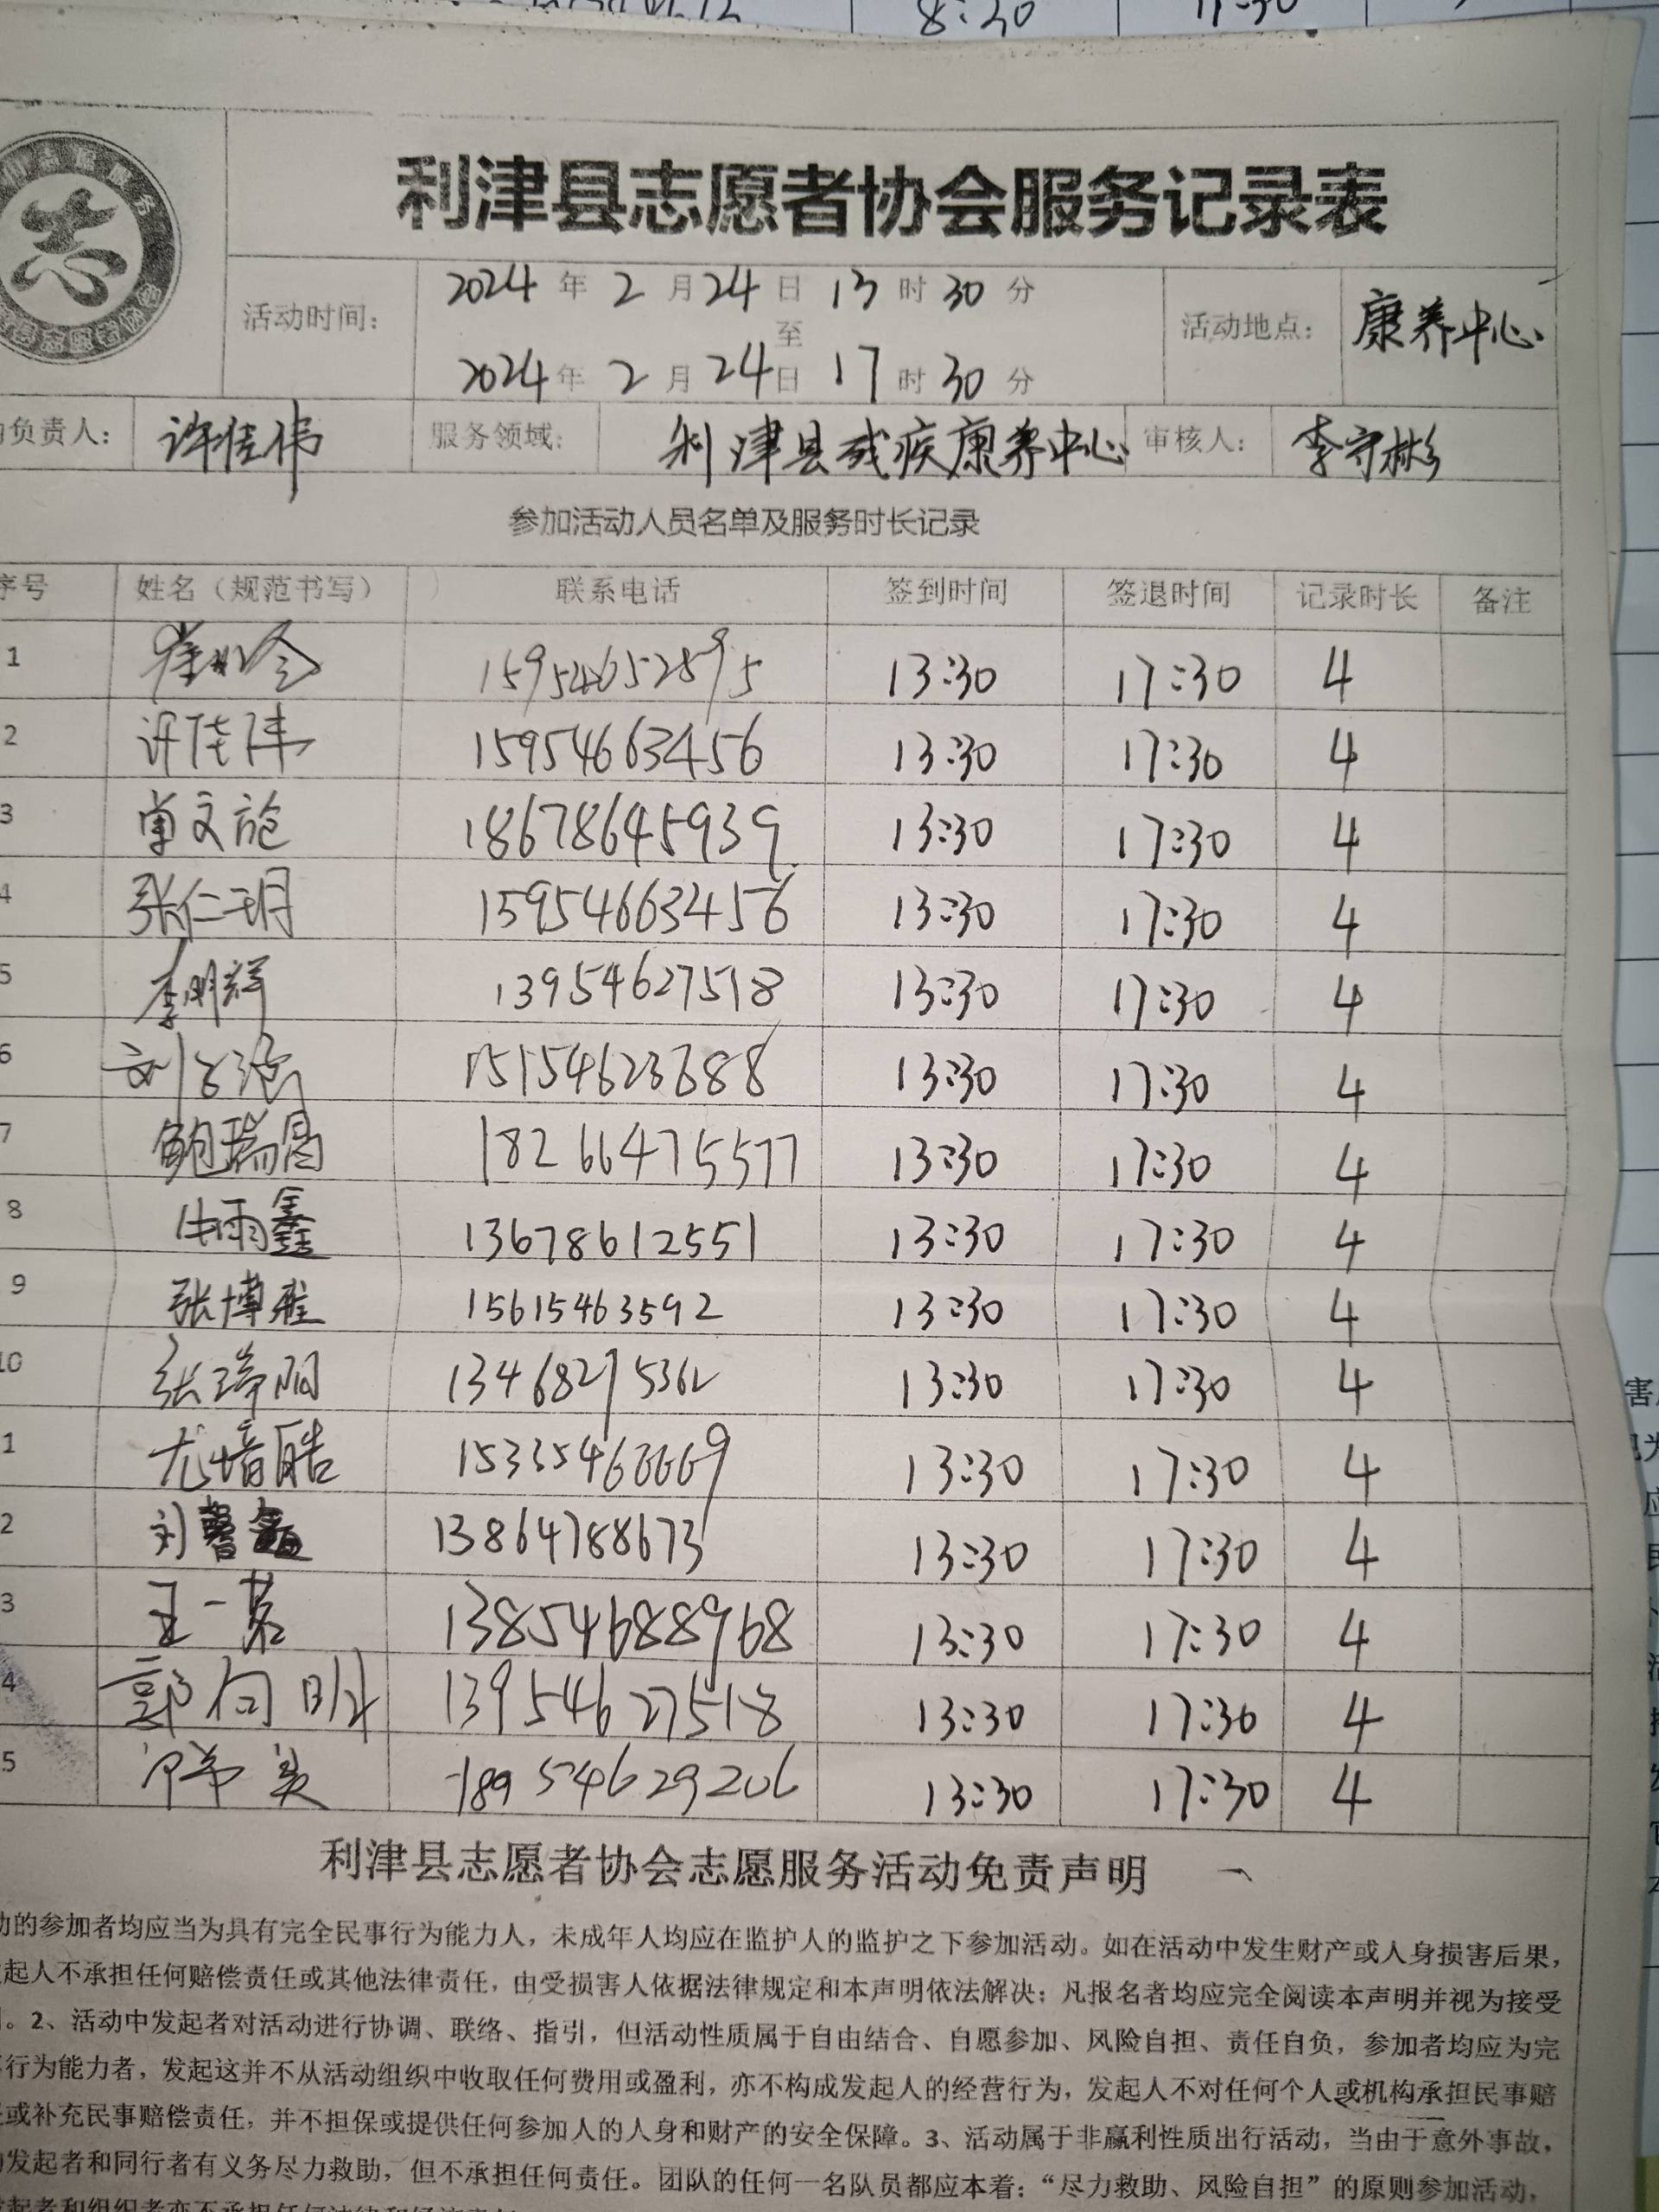 8:30 17:30
利津县志愿者协会服务记录表
活动时间: 2024年2月24日13时30分
至
2024年2月24日17时30分
活动地点: 康养中心
负责人: 许佳伟 服务领域: 利津县残疾康养中心 审核人: 李守彬
参加活动人员名单及服务时长记录
序号 姓名（规范书写） 联系电话 签到时间 签退时间 记录时长 备注
1 15954652895 13:30 17:30 4
2 许佳伟 15954663456 13:30 17:30 4
3 单文旎 18678645939 13:30 17:30 4
4 张仁玥 15954663456 13:30 17:30 4
5 李明辉 13954627518 13:30 17:30 4
6 刘 15154623688 13:30 17:30 4
7 鲍瑞 18266475577 13:30 17:30 4
8 牛雨鑫 13678612551 13:30 17:30 4
9 张博雅 15615463592 13:30 17:30 4
10 张 13468275362 13:30 17:30 4
1 尤培皓 15335466669 13:30 17:30 4
2 刘馨 13864788673 13:30 17:30 4
3 王一茗 13854688968 13:30 17:30 4
4 郭向明 13954627518 13:30 17:30 4
5 18954629206 13:30 17:30 4
利津县志愿者协会志愿服务活动免责声明
动的参加者均应当为具有完全民事行为能力人，未成年人均应在监护人的监护之下参加活动。如在活动中发生财产或人身损害后果，
起人不承担任何赔偿责任或其他法律责任，由受损害人依据法律规定和本声明依法解决；凡报名者均应完全阅读本声明并视为接受
。2、活动中发起者对活动进行协调、联络、指引，但活动性质属于自由结合、自愿参加、风险自担、责任自负，参加者均应为完
行为能力者，发起这并不从活动组织中收取任何费用或盈利，亦不构成发起人的经营行为，发起人不对任何个人或机构承担民事赔
或补充民事赔偿责任，并不担保或提供任何参加人的人身和财产的安全保障。3、活动属于非赢利性质出行活动，当由于意外事故，
发起者和同行者有义务尽力救助，但不承担任何责任。团队的任何一名队员都应本着：“尽力救助、风险自担”的原则参加活动，